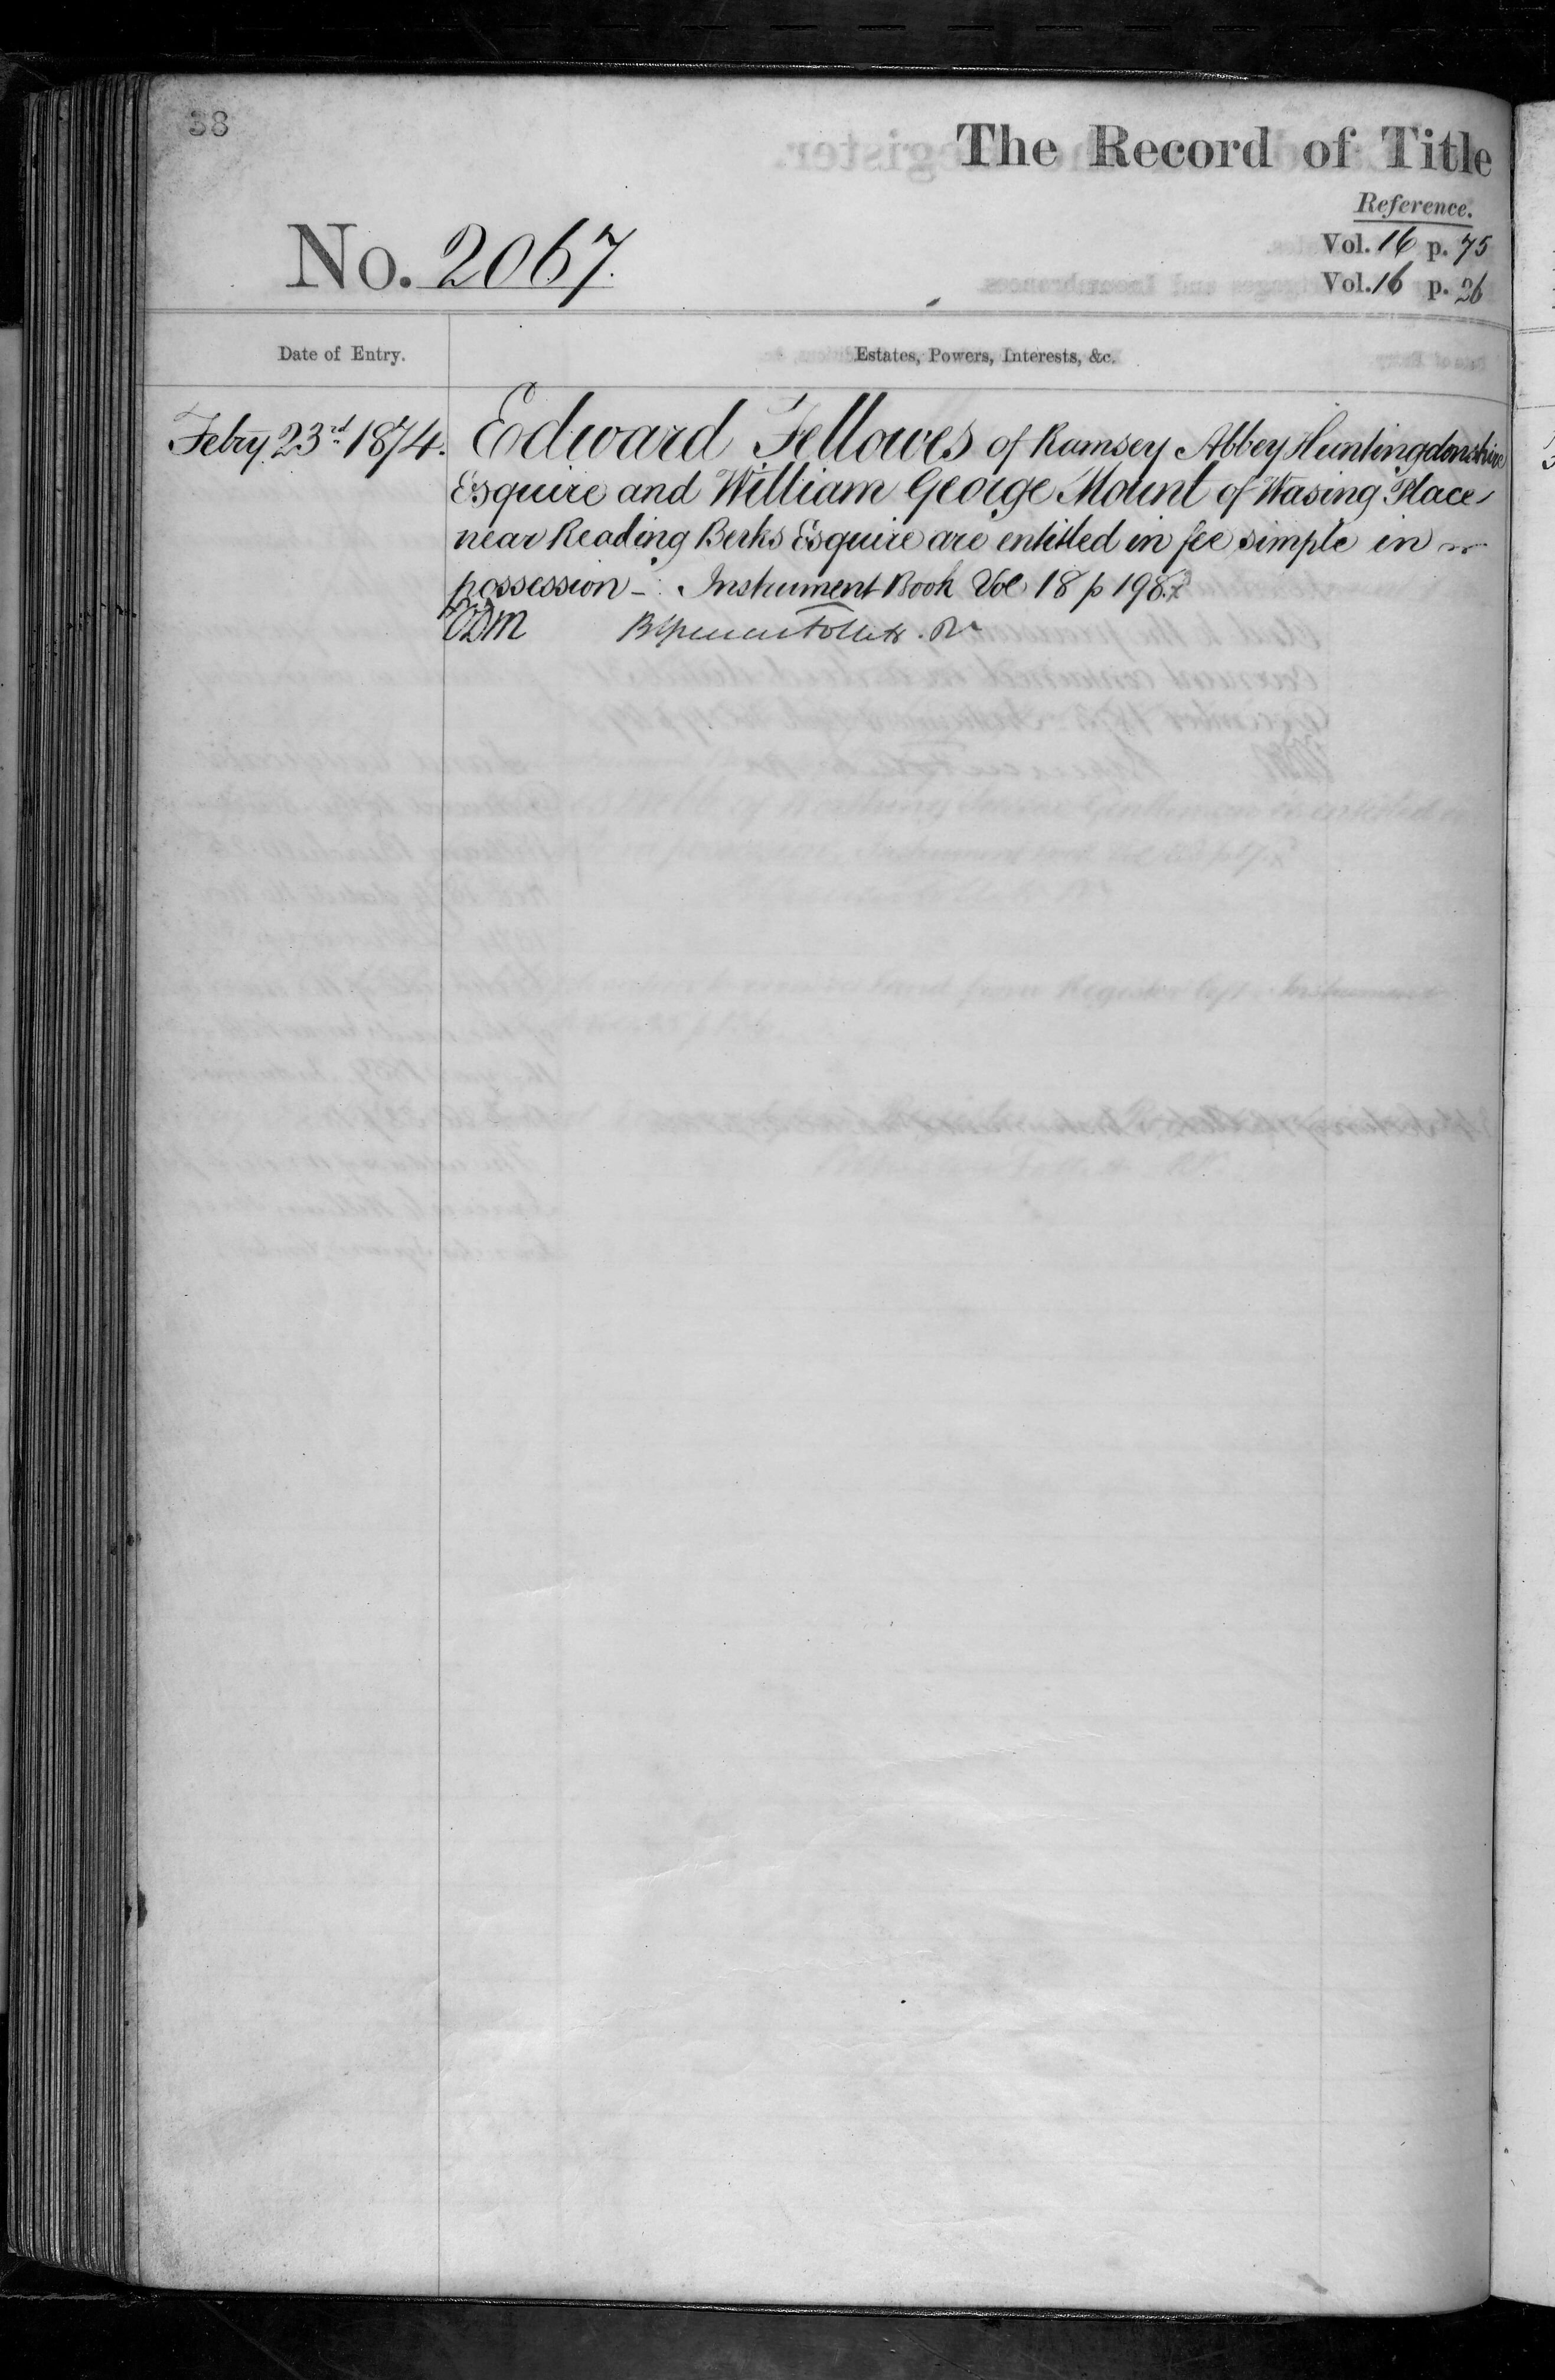 38
The Record of Title
Reference.
Vol. 16 p. 75
No. 2067.
Vol. 16 p. 26
Date of Entry.
Estates, Powers, Interests, &c.
Febry. 23rd 1874.
Edward Fellowes of Ramsey Abbey Huntingdonshire
Esquire and William George Mount of Wasing Place
near Reading Berks Esquire are entitled in fee simple in
possession - Instrument Book Vol 18 p 198.